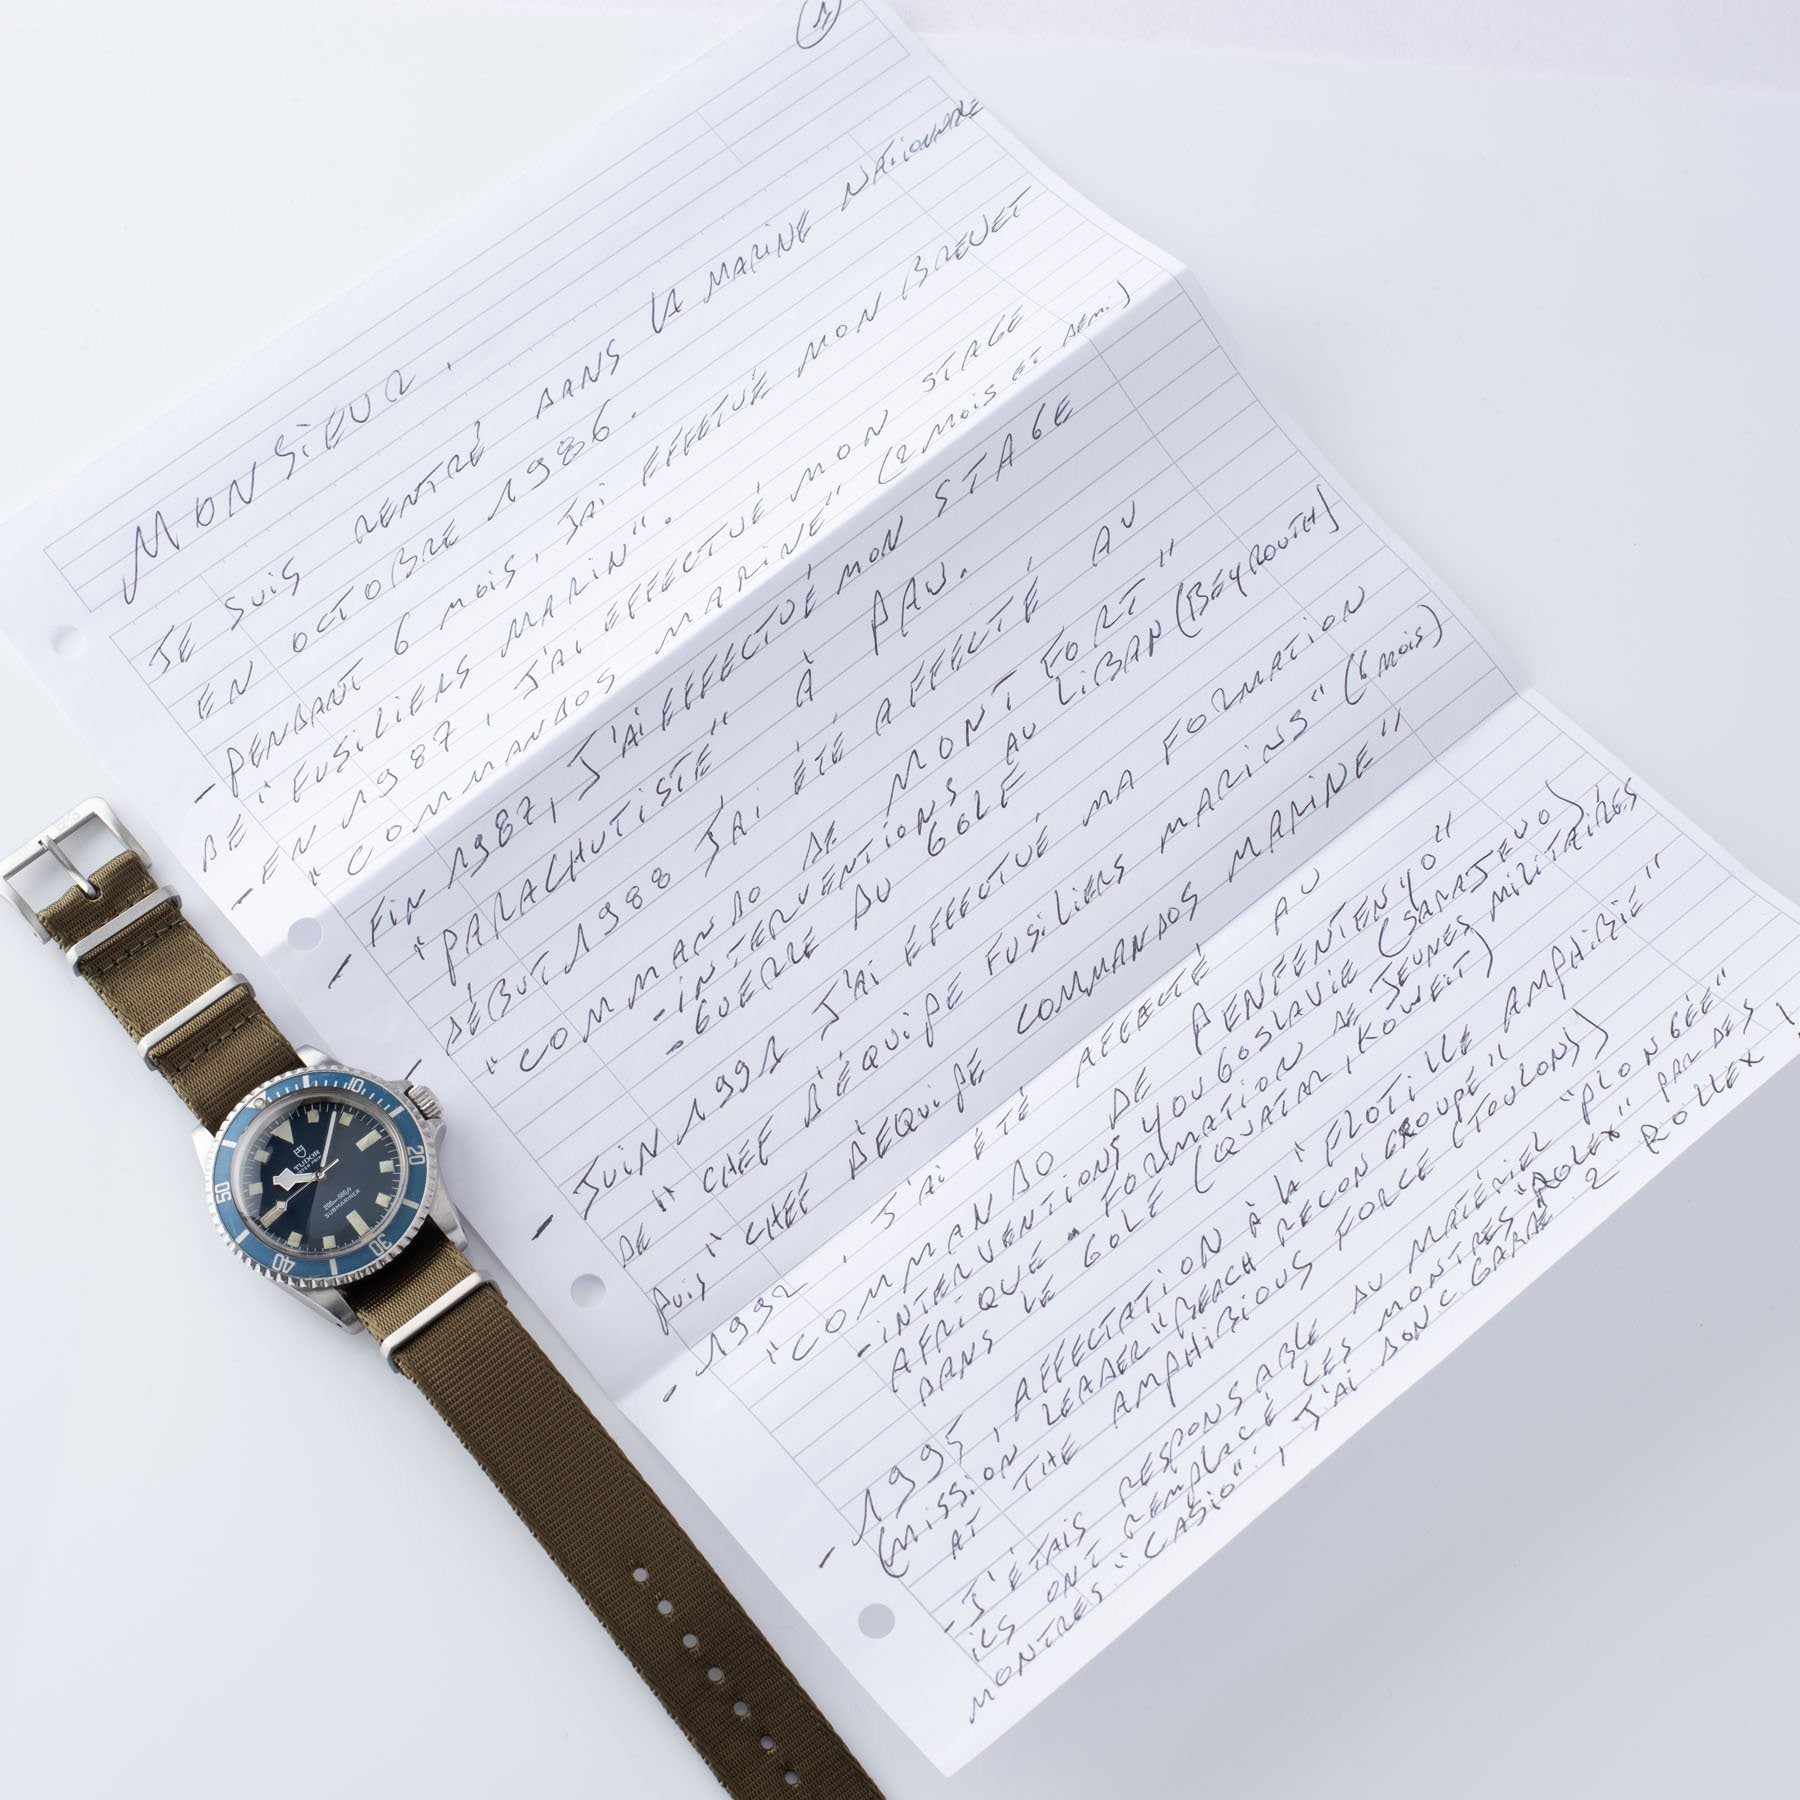 1
MONSIEUR,
JE SUIS RENTRÉ DANS LA MARINE NATIONALE
EN OCTOBRE 1986.
- PENDANT 6 MOIS, J'AI EFFETUÉ MON BREVET
DE "FUSILIERS MARIN".
- EN 1987, J'AI EFFECTUÉ MON STAGE
"COMMANDOS MARINE" (2 MOIS ET DEMI)
- FIN 1987, J'AI EFFECTUÉ MON STAGE
"PARACHUTISTE" À PAU.
- DÉBUT 1988 J'AI ÉTÉ AFFECTÉ AU
"COMMANDO DE MONTFORT"
- INTERVENTIONS AU LIBAN (BEYROUTH)
- GUERRE DU GOLF
- JUIN 1991 J'AI EFFECTUÉ MA FORMATION
DE "CHEF D'ÉQUIPE FUSILIERS MARINS" (6 MOIS)
PUIS "CHEF D'EQUIPE COMMANDOS MARINE"
- 1992, J'AI ÉTÉ AFFECTÉ AU
"COMMANDO DE PENFENTENYO"
- INTERVENTIONS YOUGOSLAVIE (SARAJEVO),
AFRIQUE - FORMATION DE JEUNES MILITAIRES
DANS LE GOLE (QUATAR, KOWEIT)
- 1995, AFFECTATION À LA "FLOTILLE AMPHIBIE"
(MISSION LEADER "BEACH RECON GROUPE"
AT THE AMPHIBIOUS FORCE (TOULONS)
- J'ÉTAIS RESPONSABLE DU MATÉRIEL "PLONGÉE"
ILS ONT REMPLACÉ LES MONTRES "ROLEX" PAR DES
MONTRES "CASIO", J'AI DONC GARDÉ 2 ROLLEX !
TUDOR
200m=660ft
SUBMARINER
10
20
30
40
50